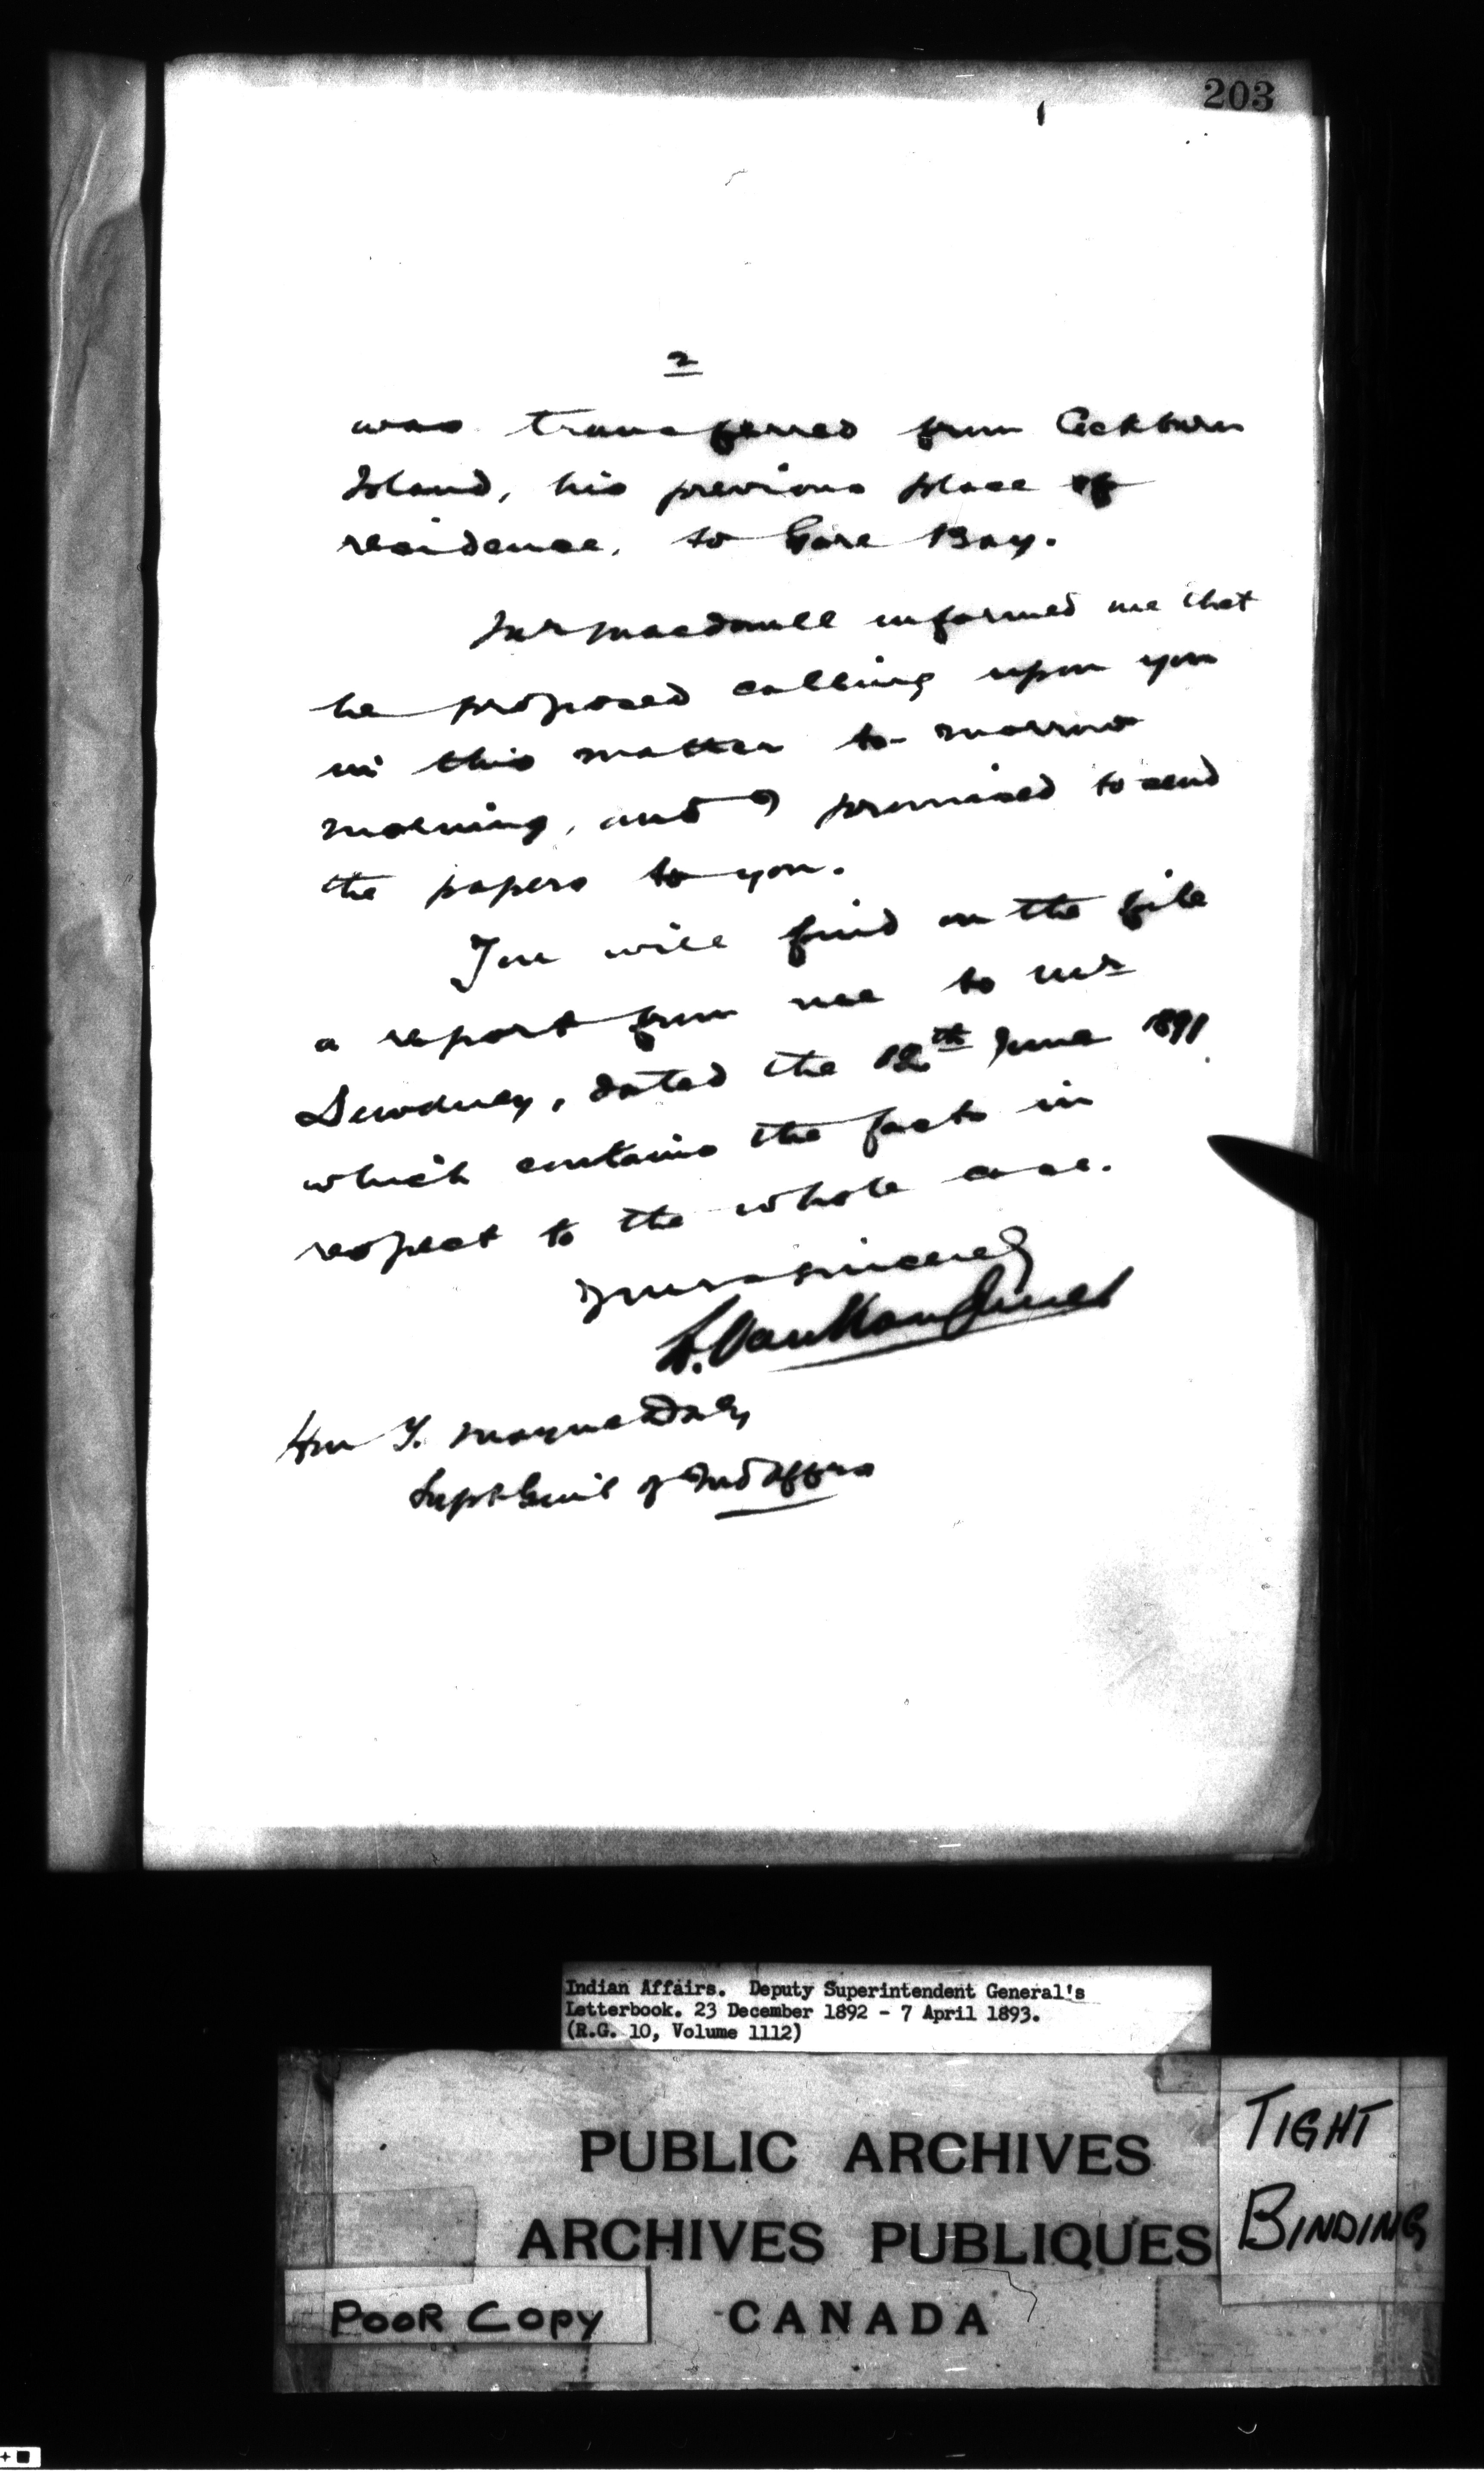 203
2
was transferred from Cockburn
Island, his previous place of
residence, to Gore Bay.
Mr Macdonell informed me that
he proposed calling upon you
in this matter to-morrow
morning, and I promised to send
the papers to you.
You will find on the file
a report from me to Mr
Dewdney, dated the 12th June 1891
which contains the facts in
respect to the whole case.
Yours sincerely
L. VanKoughnet
Hon T. Mayne Daly
Supt Genl of Ind Affrs
Indian Affairs. Deputy Superintendent General's
Letterbook. 23 December 1892 - 7 April 1893.
(R.G. 10, Volume 1112)
PUBLIC ARCHIVES
ARCHIVES PUBLIQUES
CANADA
TIGHT
BINDING
POOR COPY